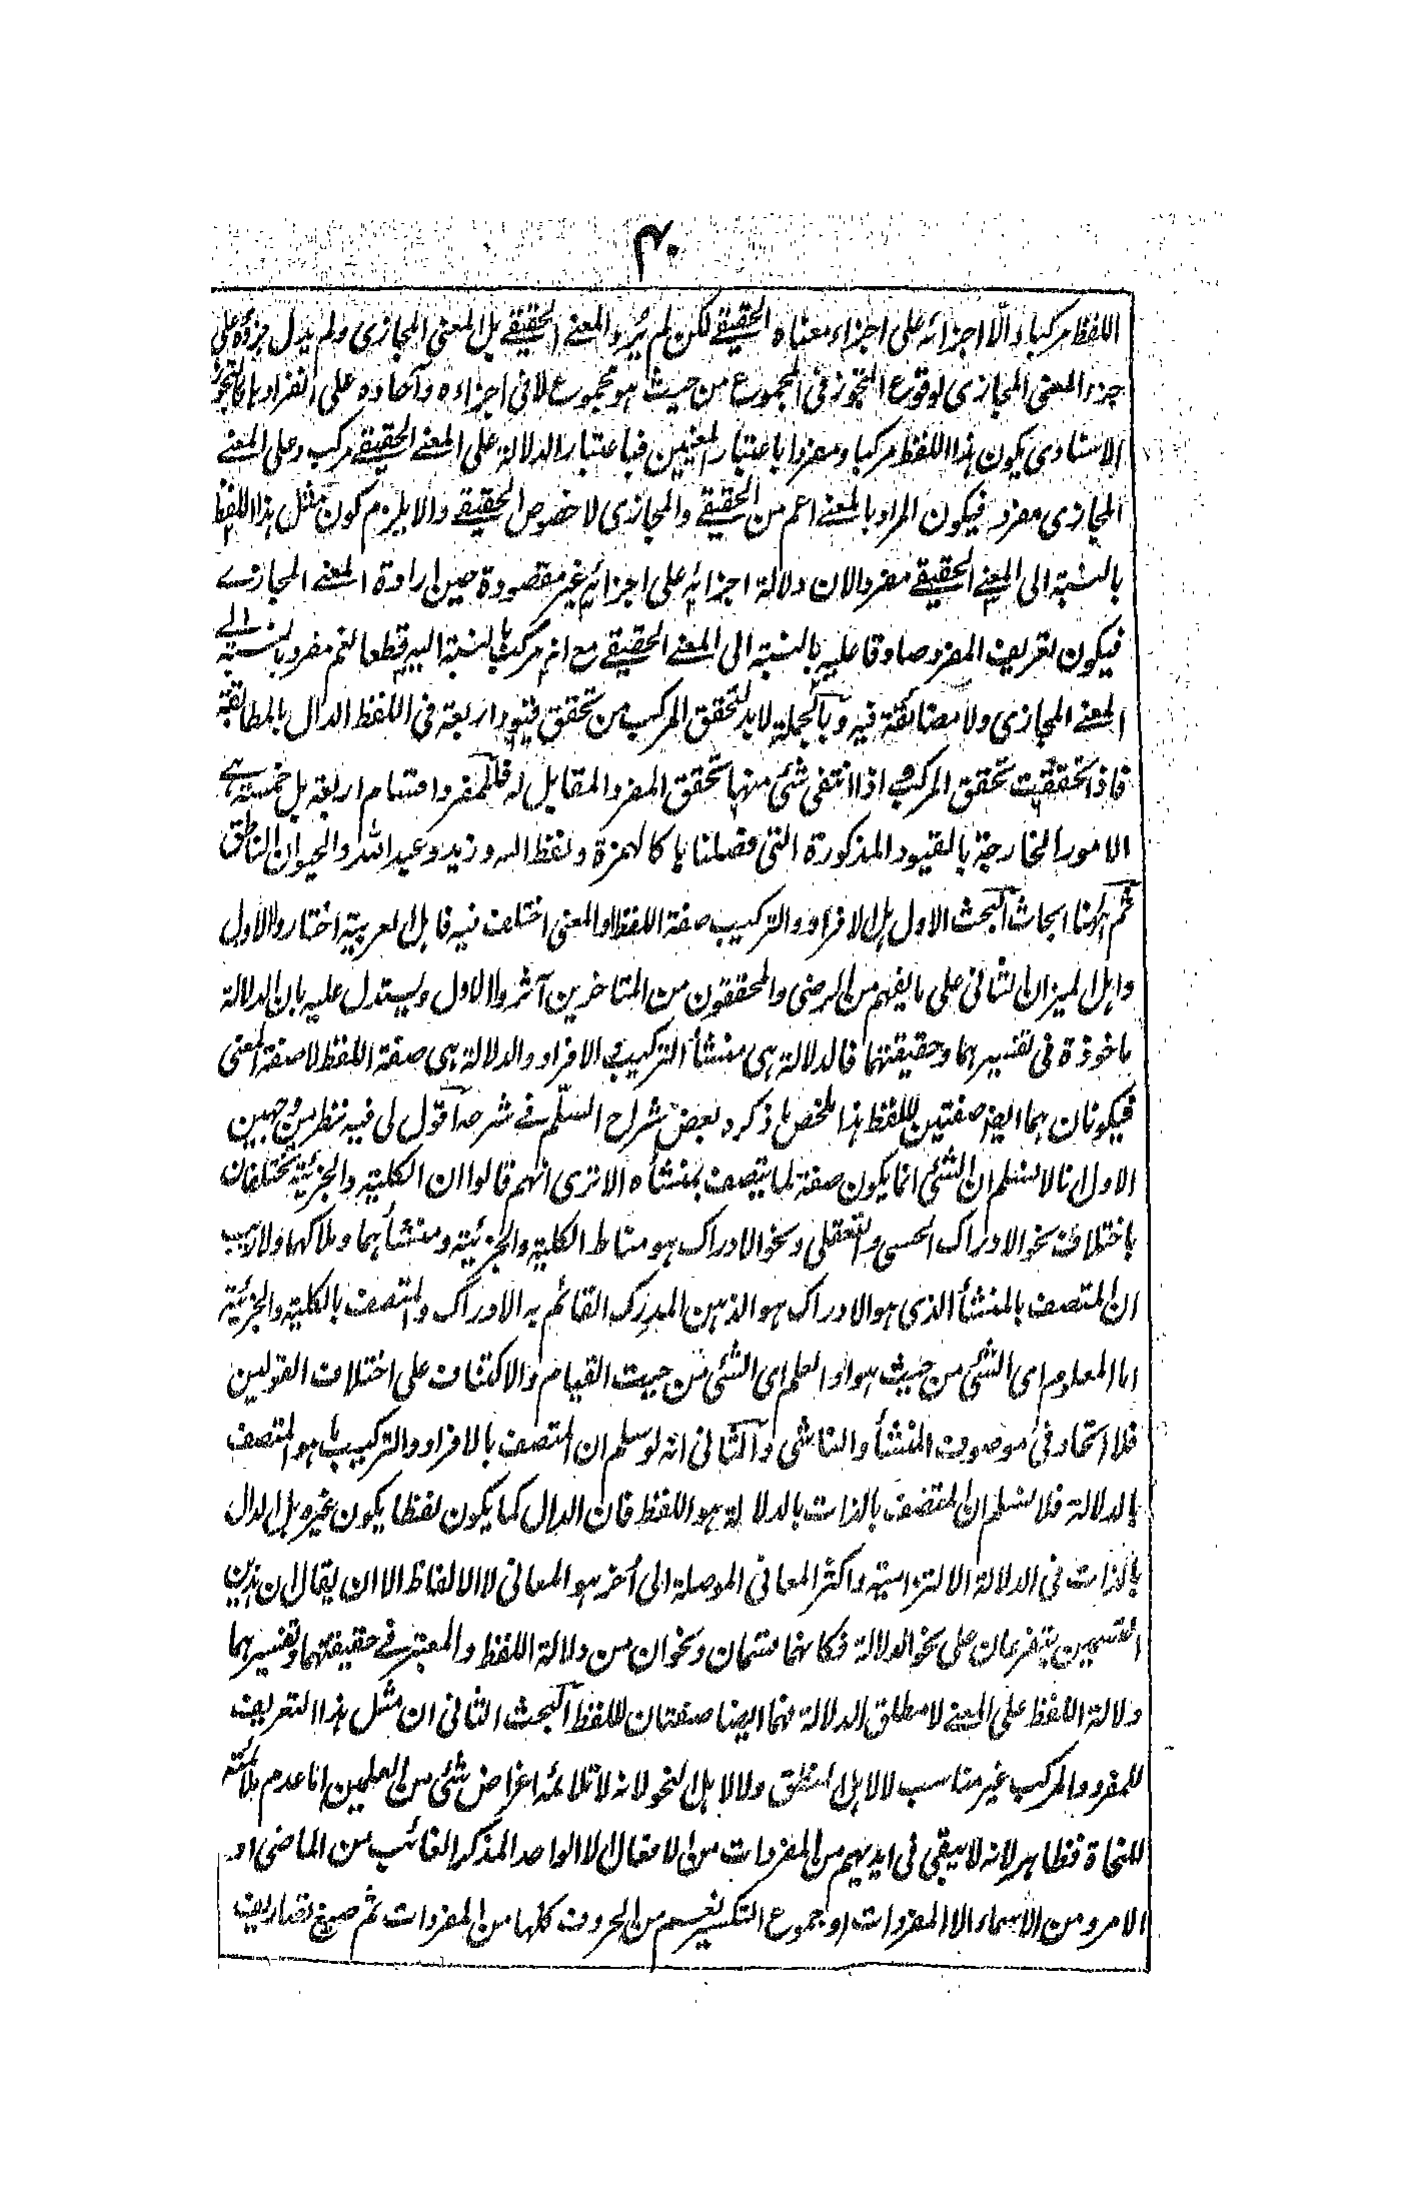 ۴۰
اللفظ مركبا دالا اجزائه على اجزاء معناه الحقيقے لكن لم يُرد المعنے الحقيقے بل المعنى المجازى ولم يدل جزؤه على
جزء المعنى المجازى لوقوع التجوز فى المجموع من حيث هو مجموع لا فى اجزاءه وآحاده على انفرادها كالتجوز
الاسنادى يكون هذا اللفظ مركبا ومفردا باعتبار المعنيين فباعتبار الدلالة على المعنے الحقيقے مركب وعلى المعنے
المجازى مفرد فيكون المراد بالمعنے اعم من الحقيقے والمجازى لا خصوص الحقيقے والا يلزم كون مثل هذا اللفظ
بالنسبة الى المعنے الحقيقے مفردا لان دلالة اجزائه على اجزائه غير مقصودة حين ارادة المعنے المجازے
فيكون تعريف المفرد صادقا عليه بالنسبة الى المعنے الحقيقے مع انه مركب بالنسبة اليه قطعا نعم مفرد بالنسبة الے
المعنے المجازى ولا مضائقة فيه وبالجملة لا بد لتحقق المركب من تحقق قيود اربعة فى اللفظ الدال بالمطابقة
فاذا تحققت تحقق المركب و اذا انتفى شئ منها تحقق المفرد المقابل له فللمفرد اقسام اربعة بل خمسة هے
الامور الخارجة بالقيود المذكورة التى فصلناها كالهمزة ولفظ الله وزيد وعبد الله والحيوان الناطق
ثم ههنا ابحاث البحث الاول هل الافراد والتركيب صفة اللفظ او المعنى اختلف فيه فاهل العربية اختاروا الاول
واهل الميزان الثانى على ما يفهم من الرضى والمحققون من المتاخرين آثروا الاول ويستدل عليه بان الدلالة
ماخوذة فى تفسيرهما وحقيقتهما فالدلالة هى منشأ التركيب و الافراد والدلالة هى صفة اللفظ لا صفة المعنى
فيكونان هما ايضا صفتين للفظ هذا ملخص ما ذكره بعض شراح السلّم فے شرحه اقول لى فيه نظر من وجهين
الاول انا لا نسلم ان الشئ انما يكون صفة لما يتصف بمنشأه الا ترى انهم قالوا ان الكلية والجزئية تختلفان
باختلاف نحو الادراك الحسى والتعقلى ونحو الادراك هو مناط الكلية والجزئية ومنشأهما وملاكهما ولا ريب
ان المتصف بالمنشأ الذى هو الادراك هو الذهن المدرِك القائم به الادراك والمتصف بالكلية والجزئية
اما المعلوم اى الشئ من حيث هو او العلم اى الشئ من حيث القيام والاكتناف على اختلاف القولين
فلا اتحاد فى موصوف المنشأ والناشى والثانى انه لو سلم ان المتصف بالافراد والتركيب ما هو المتصف
بالدلالة فلا نسلم ان المتصف بالذات بالدلالة هو اللفظ فان الدال كما يكون لفظا يكون غيره بل الدال
بالذات فى الدلالة الالتزامية واكثر المعانى الموصلة الى أخر هو المعانى لا الالفاظ الا ان يقال ان هذين
القسمين يتفرعان على نحو الدلالة فكانهما قسمان ونحوان من دلالة اللفظ والمعتبر فے حقيقتهما وتفسيرهما
دلالة اللفظ على المعنے لا مطلق الدلالة فهما ايضا صفتان للفظ البحث الثانى ان مثل هذا التعريف
للمفرد والمركب غير مناسب لا لاهل المنطق ولا لاهل النحو لانه لا تلائمه اغراض شئ من العلمين اما عدم ملائمته
للنحاة فظاهر لانه لا يبقى فى ايديهم من المفردات من الافعال الا الواحد المذكر الغائب من الماضى او
الامر ومن الاسماء الا المفردات او جموع التكسير نعم من الحروف كلها من المفردات ثم صيغ تصاريف